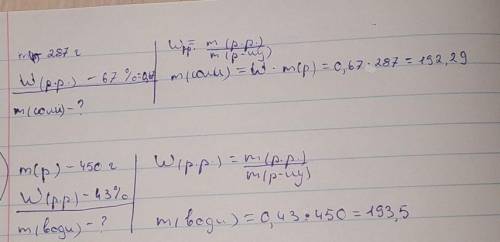 287 г
W(р.р.) – 67 %
m(соли) – ?
Wр.р. = m(р.р.) / m(р-ну)
m(соли) = W · m(р) = 0,67 · 287 = 192,29
m(р) – 450 г
W(р.р) – 43%
m(води) – ?
W(р.р.) = m(р.р.) / m(р-ну)
m(води) = 0,43 · 450 = 193,5